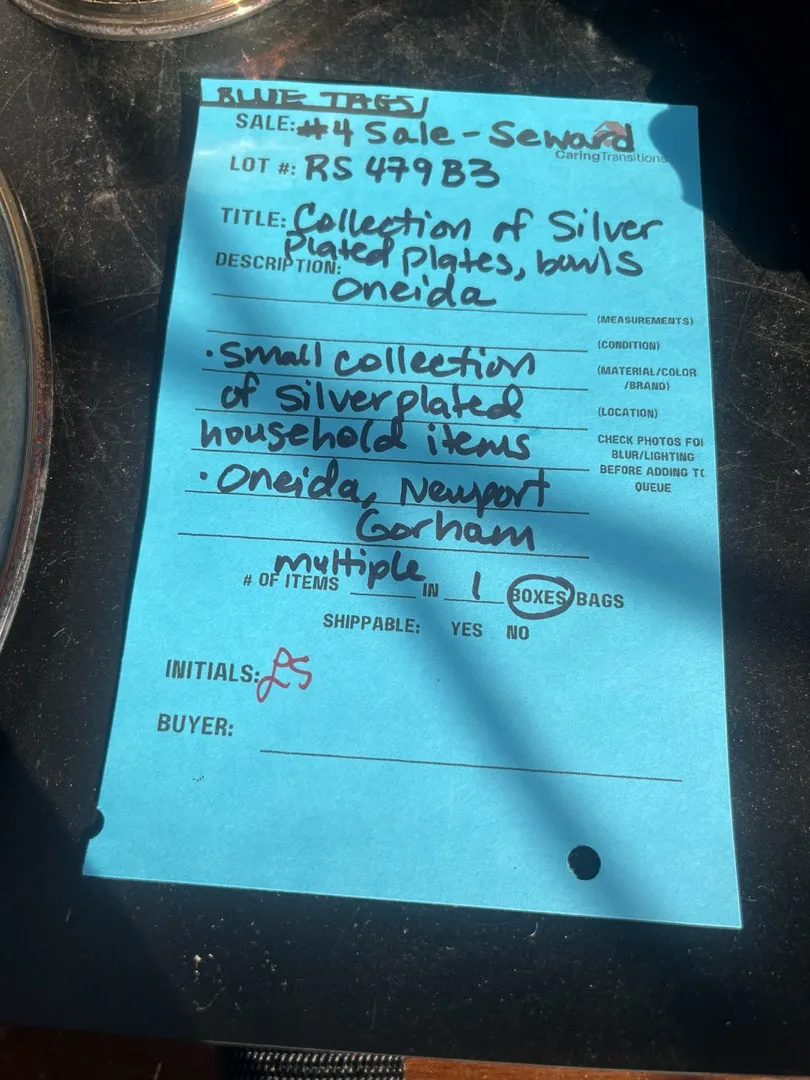 BLUE TAGS
SALE: #4 Sale - Seward
CaringTransitions
LOT #: RS 479B3
TITLE: Collection of Silver
Plated plates, bowls
DESCRIPTION:
Oneida
(MEASUREMENTS)
(CONDITION)
• Small collection
(MATERIAL/COLOR
/BRAND)
of silverplated
(LOCATION)
household items
CHECK PHOTOS FO
BLUR/LIGHTING
BEFORE ADDING TO
QUEUE
• Oneida, Newport
Gorham
# OF ITEMS multiple IN 1 BOXES/BAGS
SHIPPABLE: YES NO
INITIALS: LS
BUYER: